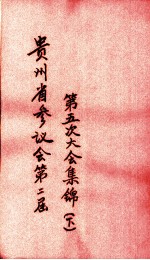 贵州省参议会第二届
第五次大会集锦(下)